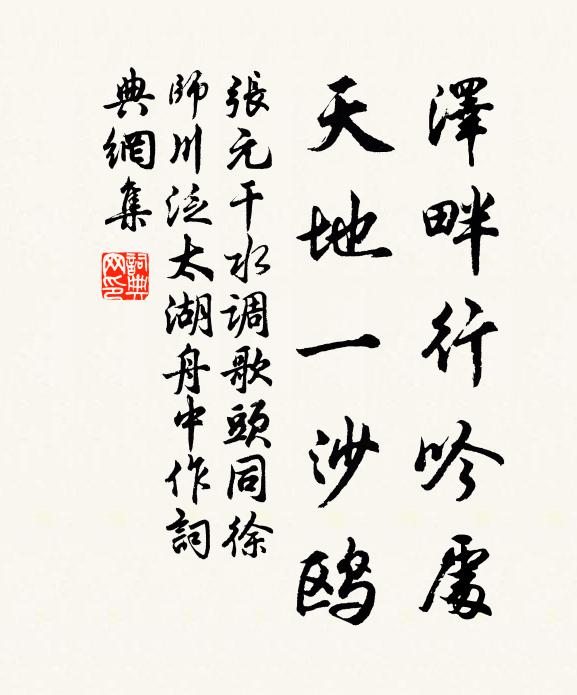 澤畔行吟處
天地一沙鸥
張元干水调歌頭同徐
師川泛太湖舟中作詞
典網集
詞典网印